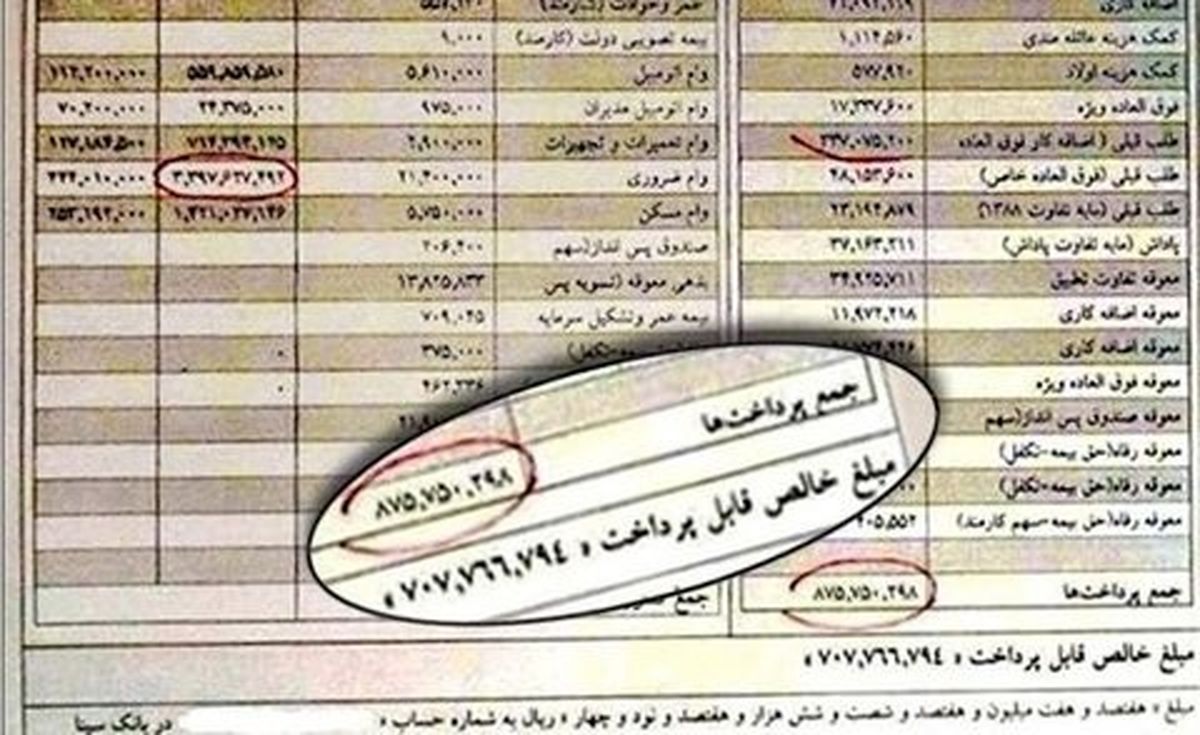 اضافه کاری ۲۱,۰۹۲,۱۱۹
کمک هزینه عائله مندی ۱,۱۱۴,۵۶۰
کمک هزینه اولاد ۵۷۷,۹۲۰
فوق العاده ویژه ۱۷,۳۳۷,۶۰۰
طلب قبلی ( اضافه کار فوق العاده ۳۳۷,۰۷۵,۲۰۰
طلب قبلی (فوق العاده خاص) ۴۸,۱۵۳,۶۰۰
طلب قبلی (مابه تفاوت ۱۳۸۸) ۲۳,۱۹۴,۸۷۹
پاداش (مابه تفاوت پاداش) ۳۷,۱۶۳,۲۱۱
معوقه تفاوت تطبیق ۳۴,۹۲۵,۷۱۱
معوقه اضافه کاری ۱۱,۹۷۲,۲۱۸
معوقه اضافه کاری
معوقه فوق العاده ویژه
معوقه صندوق پس انداز(سهم
معوقه رفاه(حق بیمه-تکفل)
معوقه رفاه(حق بیمه-تکفل)
معوقه رفاه(حق بیمه-سهم کارمند) ۲۰۵,۵۵۲
جمع پرداخت‌ها ۸۷۵,۷۵۰,۲۹۸
بیمه تصویبی دولت (کارمند) ۹,۰۰۰
وام اتومبیل ۵,۶۱۰,۰۰۰ ۵۵۹,۸۵۹,۵۸۰ ۱۱۲,۲۰۰,۰۰۰
وام اتومبیل مدیران ۹۷۵,۰۰۰ ۲۴,۳۷۵,۰۰۰ ۷۰,۲۰۰,۰۰۰
وام تعمیرات و تجهیزات ۲,۹۰۰,۰۰۰ ۷۱۴,۲۹۳,۱۲۵ ۱۲۷,۱۸۴,۵۰۰
وام ضروری ۲۱,۴۰۰,۰۰۰ ۳,۳۹۷,۶۳۷,۴۹۲ ۴۴۴,۰۱۰,۰۰۰
وام مسکن ۵,۷۵۰,۰۰۰ ۱,۴۲۱,۰۳۷,۱۴۶ ۲۵۳,۱۹۲,۰۰۰
صندوق پس انداز(سهم ۲۰۶,۴۰۰
بدهی معوقه (تسویه پس ۱۳,۸۲۵,۸۳۳
بیمه عمر وتشکیل سرمایه ۷۰۹,۰۲۵
۳۷۵,۰۰۰ ۰
۴۶۲,۳۳۶ ۰
جمع
جمع پرداخت‌ها
۸۷۵,۷۵۰,۲۹۸
مبلغ خالص قابل پرداخت « ۷۰۷,۷۶۶,۷۹۴ »
مبلغ خالص قابل پرداخت « ۷۰۷,۷۶۶,۷۹۴ »
مبلغ « هفتصد و هفت میلیون و هفتصد و شصت و شش هزار و هفتصد و نود و چهار » ریال به شماره حساب « در بانک سینا